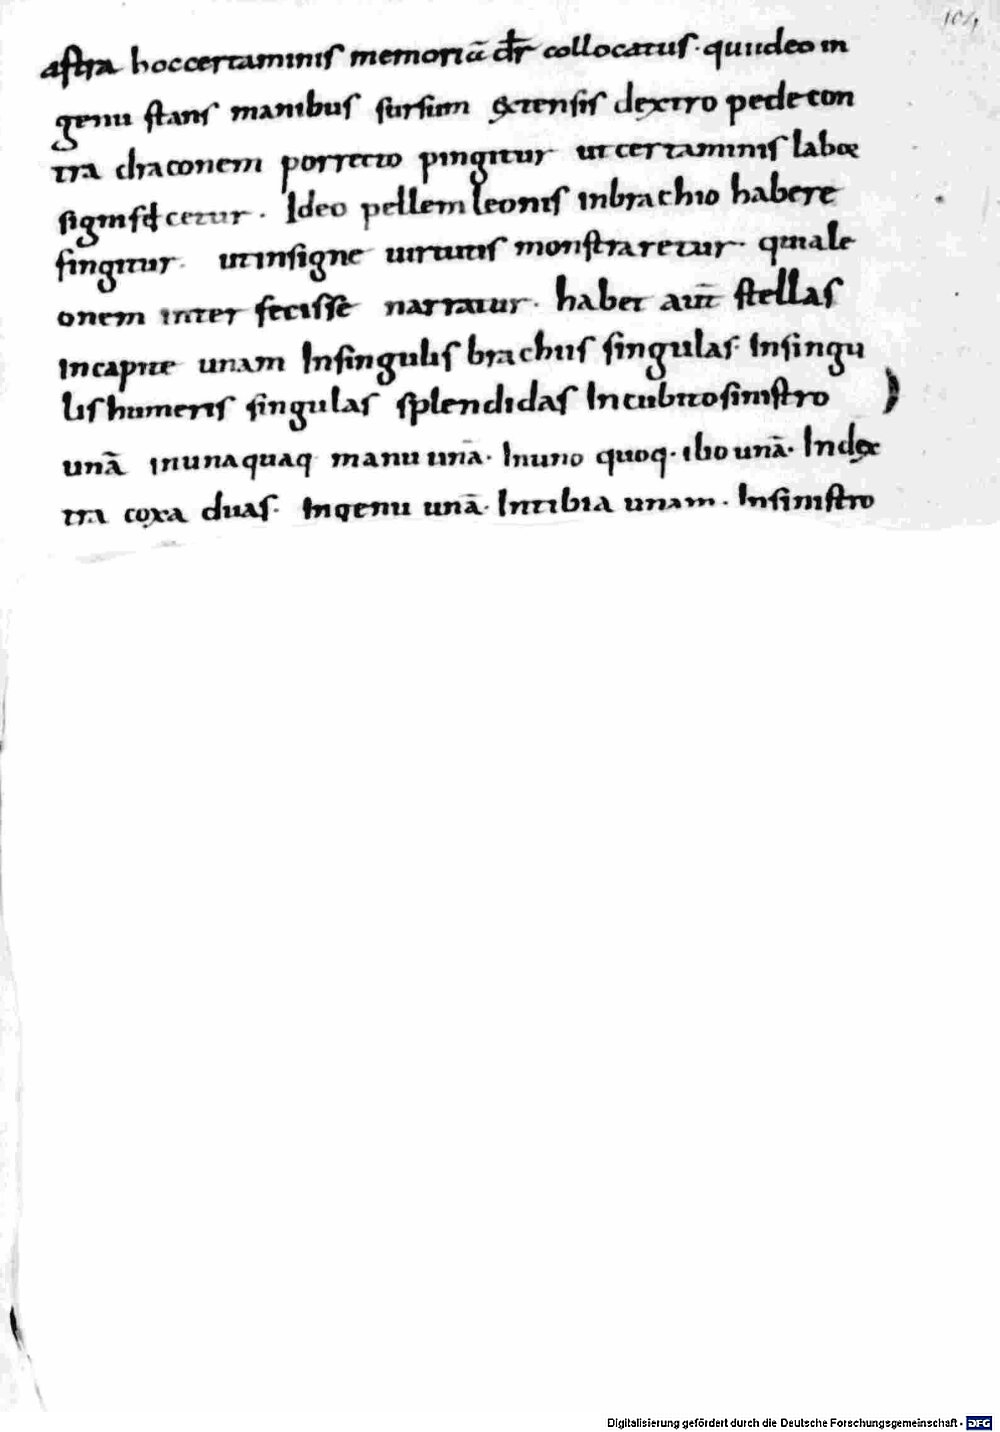 104
astra hoccertaminis memoriā dr̄ collocatus · quiideo in
genu stans manibus sursum &tensis dextro pede con
tra draconem porrecto pingitur utcertaminis labor
significetur · Ideo pellem leonis inbrachio habere
fingitur · utinsigne uirtutis monstraretur · quia le
onem inter fecisse narratur · habet aut̄ stellas
Incapite unam Insingulis brachiis singulas · Insingu
lis humeris singulas splendidas Incubitosinistro
unā inunaquaq manu unā · Inuno quoq · ilio unā · Index
tra coxa duas · Ingenu unā · Intibia unam · Insinistro
Digitalisierung gefördert durch die Deutsche Forschungsgemeinschaft - DFG